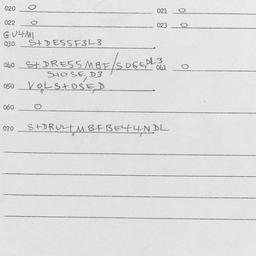 020 0 021 0
022 0 023 0
GU4MI
030 S+DESSF3L3
040 S+DRESSMBF/SDGE,DL3 041 0
S+OSE,D3
050 VOLS+OSE,D
060 0
070 S+DRU4,MBFBE44,NDL